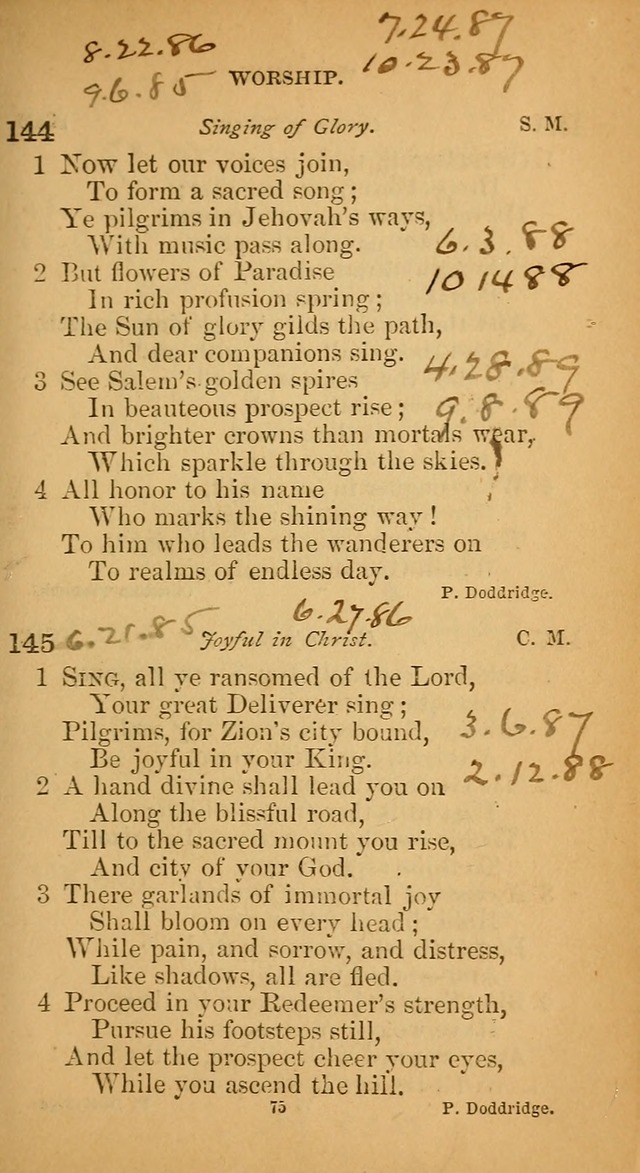 8.22.86 7.24.87
9.6.85 WORSHIP. 10.23.87
144 Singing of Glory. S. M.
1 Now let our voices join,
To form a sacred song;
Ye pilgrims in Jehovah's ways,
With music pass along. 6.3.88
2 But flowers of Paradise 10 14 88
In rich profusion spring;
The Sun of glory gilds the path,
And dear companions sing. 4.28.89
3 See Salem's golden spires
In beauteous prospect rise; 9.8.89
And brighter crowns than mortals wear,
Which sparkle through the skies.
4 All honor to his name
Who marks the shining way!
To him who leads the wanderers on
To realms of endless day.
P. Doddridge.
6.27.86
145 6.21.85 Joyful in Christ. C. M.
1 SING, all ye ransomed of the Lord,
Your great Deliverer sing;
Pilgrims, for Zion's city bound, 3.6.87
Be joyful in your King. 2.12.88
2 A hand divine shall lead you on
Along the blissful road,
Till to the sacred mount you rise,
And city of your God.
3 There garlands of immortal joy
Shall bloom on every head;
While pain, and sorrow, and distress,
Like shadows, all are fled.
4 Proceed in your Redeemer's strength,
Pursue his footsteps still,
And let the prospect cheer your eyes,
While you ascend the hill.
75 P. Doddridge.